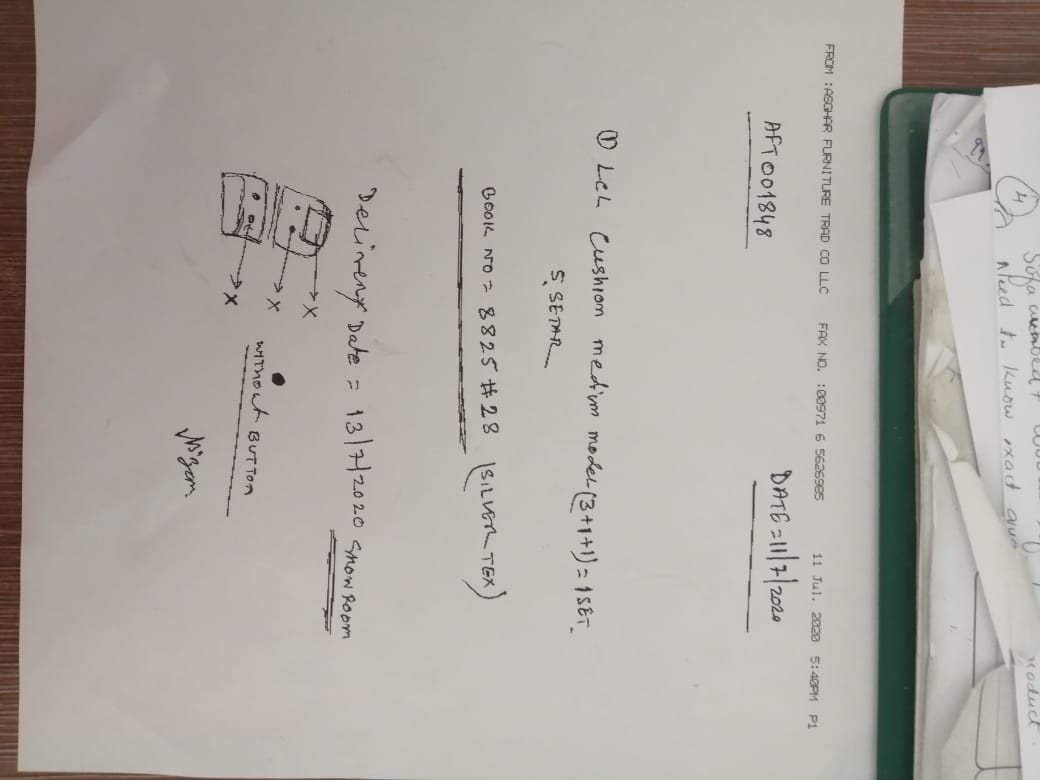 4 Sofa
Need to know exact
product.
FROM :ASGHAR FURNITURE TRAD CO LLC FAX NO. :00971 6 5626985 11 Jul. 2020 5:40PM P1
AFT001848 DATE=11/7/2020
① LCL Cushion medim model (3+1+1) = 1 SET.
5 SETAR
BOOK NO = 8825 # 28 (SILVER TEX)
Delivery Date = 13/7/2020 SHOW ROOM
X
X
WITHOUT BUTTON
X
Nizam